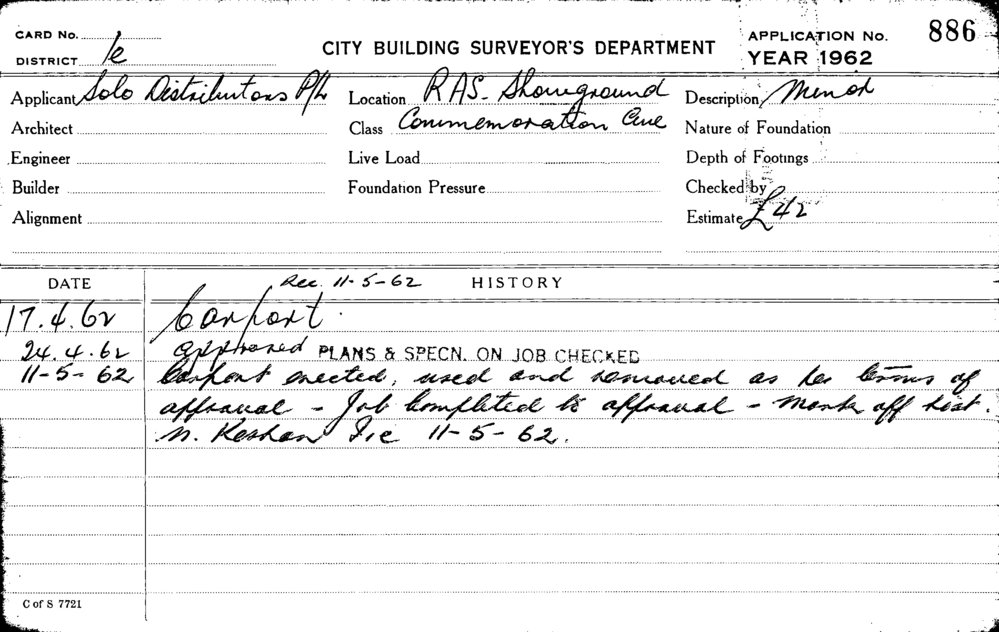 CARD No.
DISTRICT 1e
CITY BUILDING SURVEYOR'S DEPARTMENT
APPLICATION No. 886
YEAR 1962
Applicant Solo Distributors P/L
Location RAS. Showground
Description Minor
Architect
Class Commemoration Ave
Nature of Foundation
Engineer
Live Load
Depth of Footings
Builder
Foundation Pressure
Checked by
Alignment
Estimate £42
DATE
Rec. 11-5-62 HISTORY
17.4.62 Carport.
24.4.62 approved PLANS & SPECN. ON JOB CHECKED
11-5-62 Carport erected, used and removed as per terms of
approval - Job completed to approval - Mark off list.
N. 11-5-62.
C of S 7721